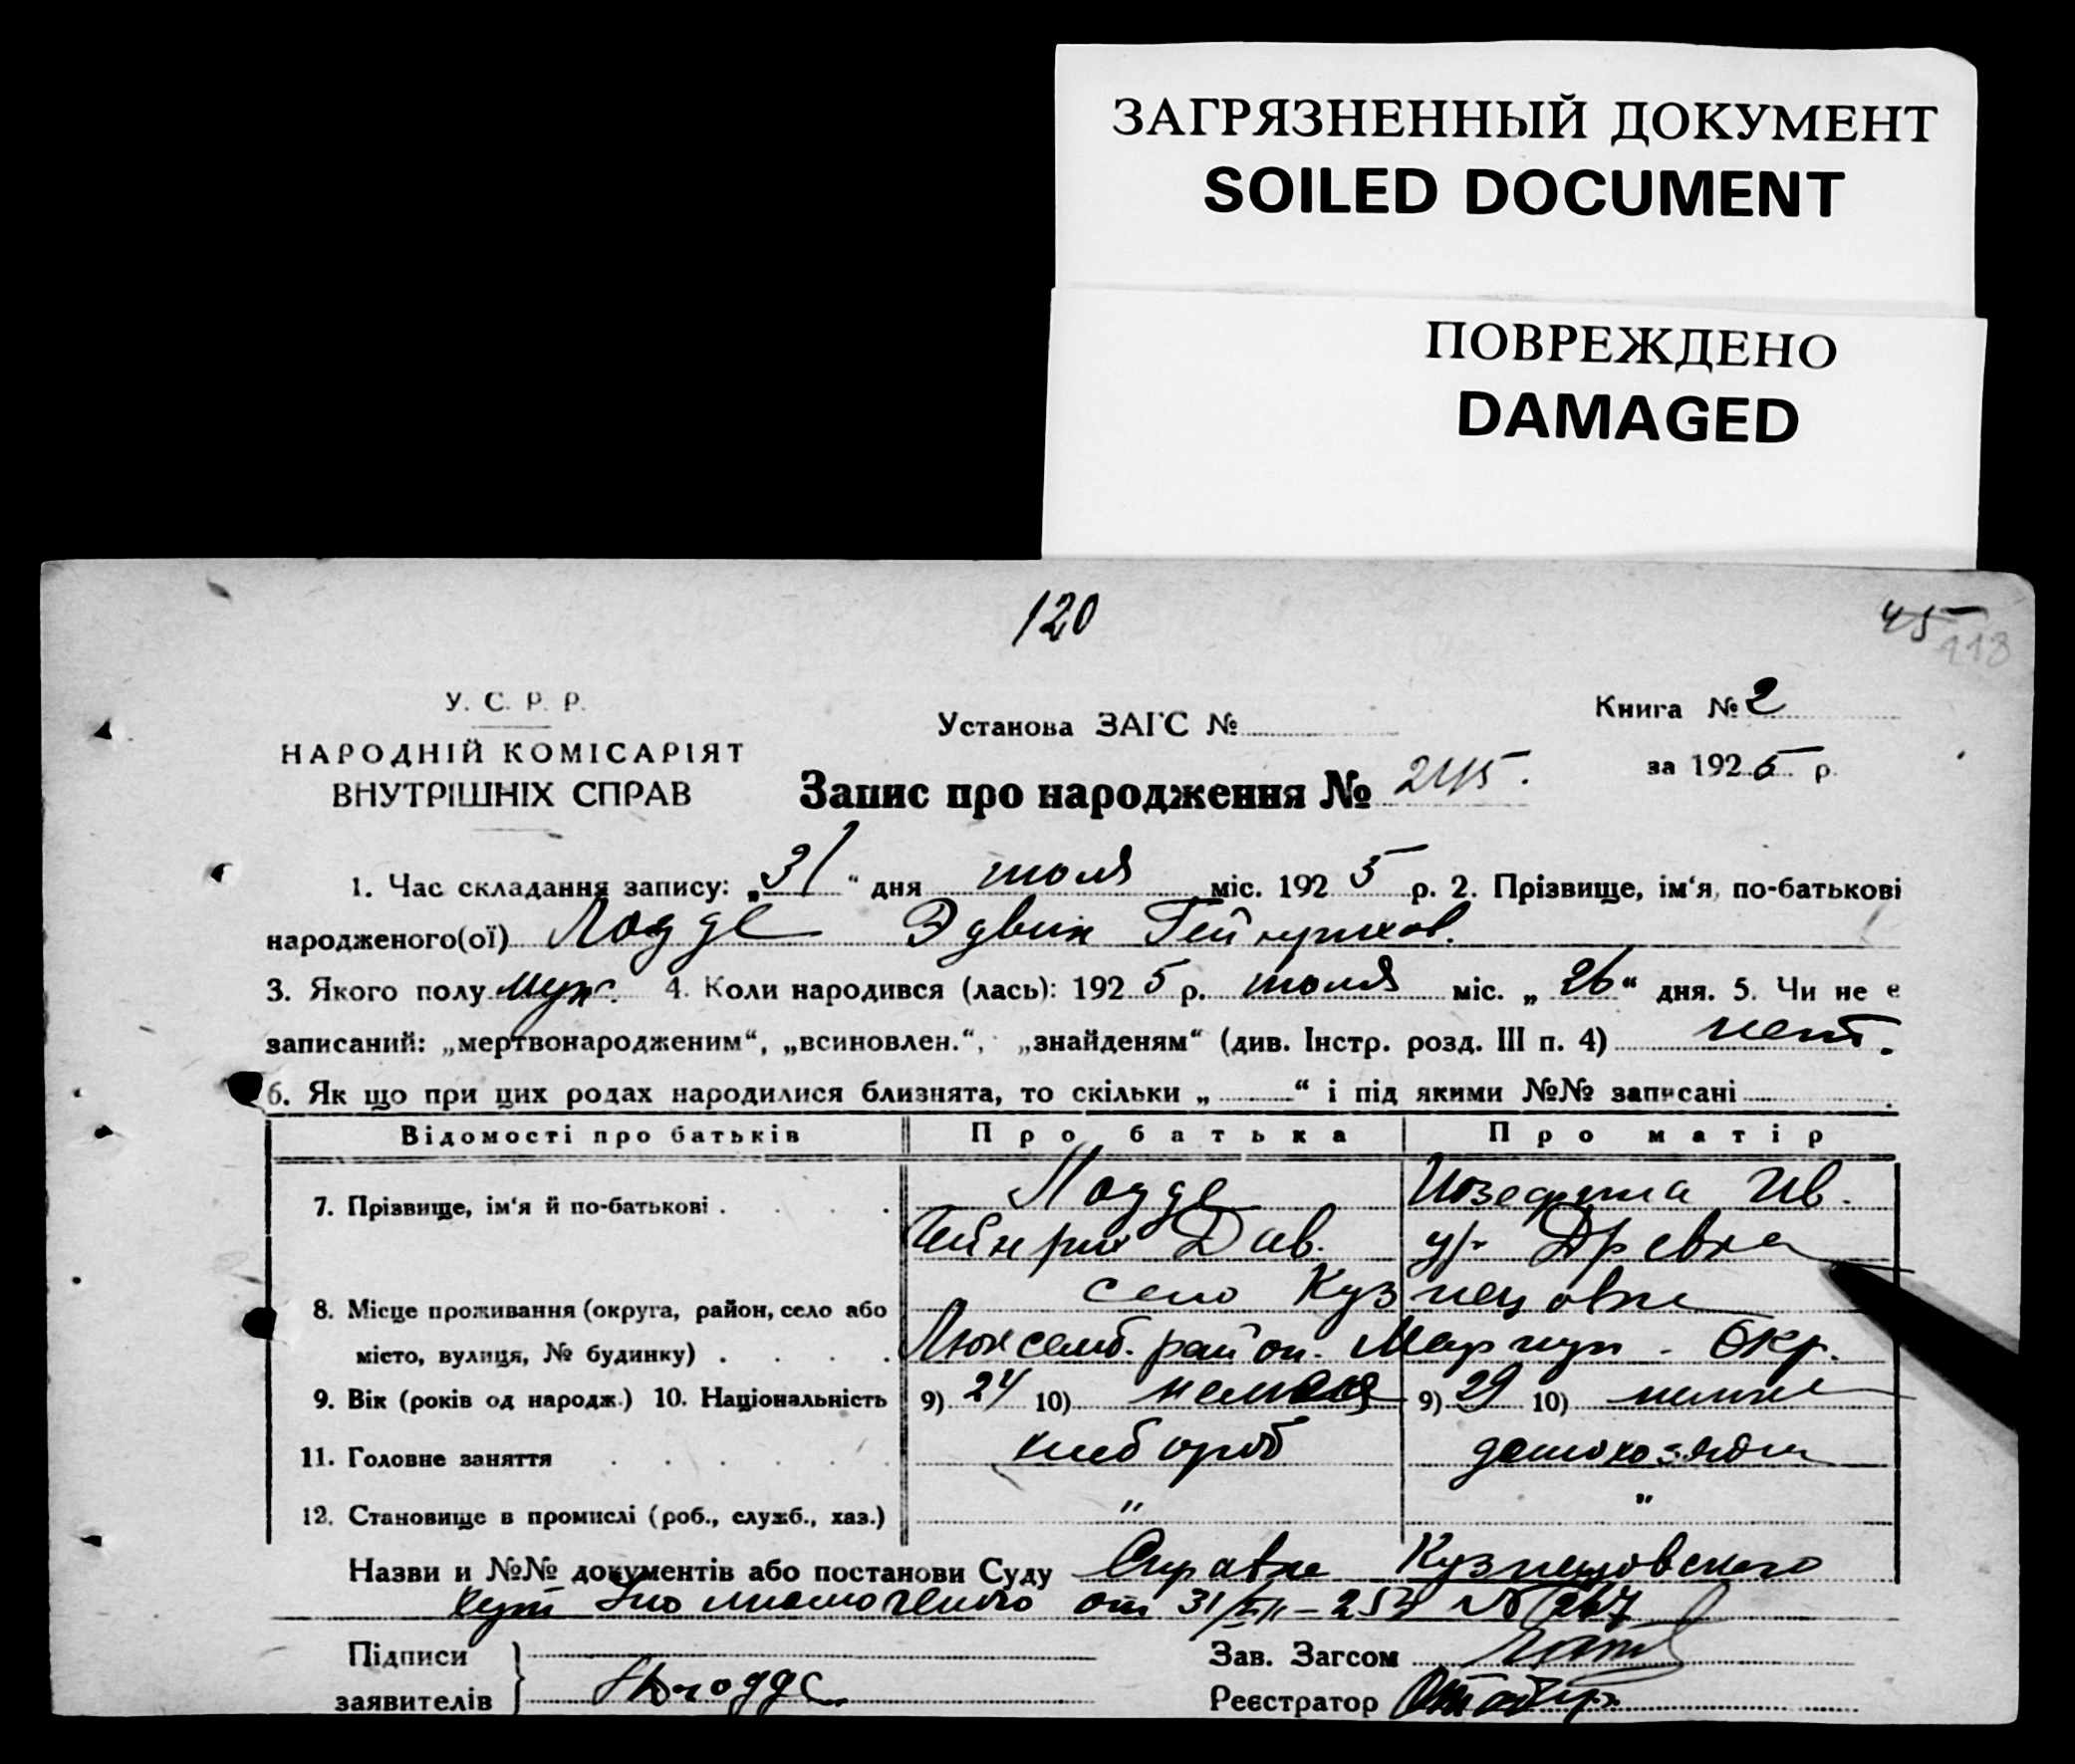 ЗАГРЯЗНЕННЫЙ ДОКУМЕНТ
SOILED DOCUMENT
ПОВРЕЖДЕНО
DAMAGED
120
45
118
У. С. Р. Р.
НАРОДНІЙ КОМІСАРІЯТ
ВНУТРІШНІХ СПРАВ
Установа ЗАГС №
Книга № 2
за 1925 р.
Запис про народження № 245.
1. Час складання запису: „31“ дня июля міс. 1925 р. 2. Прізвище, ім‘я, по-батькові
народженого(ої) Лодде Эдвин Гейнрихов.
3. Якого полу муж. 4. Коли народився (лась): 1925 р. июля міс. „26“ дня. 5. Чи не е
записаний: „мертвонародженим“, „всиновлен.“, „знайденям“ (див. Інстр. розд. III п. 4) нет.
6. Як що при цих родах народилися близнята, то скільки „ “ і під якими №№ записані
Відомості про батьків Про батька Про матір
7. Прізвище, ім‘я й по-батькові Лодде Иозефина Ив.
Гейнрих Дав. ур. Древка
8. Місце проживання (округа, район, село або село Кузнецовка
місто, вулиця, № будинку) Люксемб. район. Мариуп. Окр.
9. Вік (років од народж.) 10. Національність 9) 24 10) немец 9) 29 10) немка
11. Головне заняття хлебороб домохозяйка
12. Становище в промислі (роб., служб., хаз.) " "
Назви и №№ документів або постанови Суду Справка Кузнецовского
от 31/VII-25 № 267
Підписи
заявителів Лодде
Зав. Загсом
Реєстратор